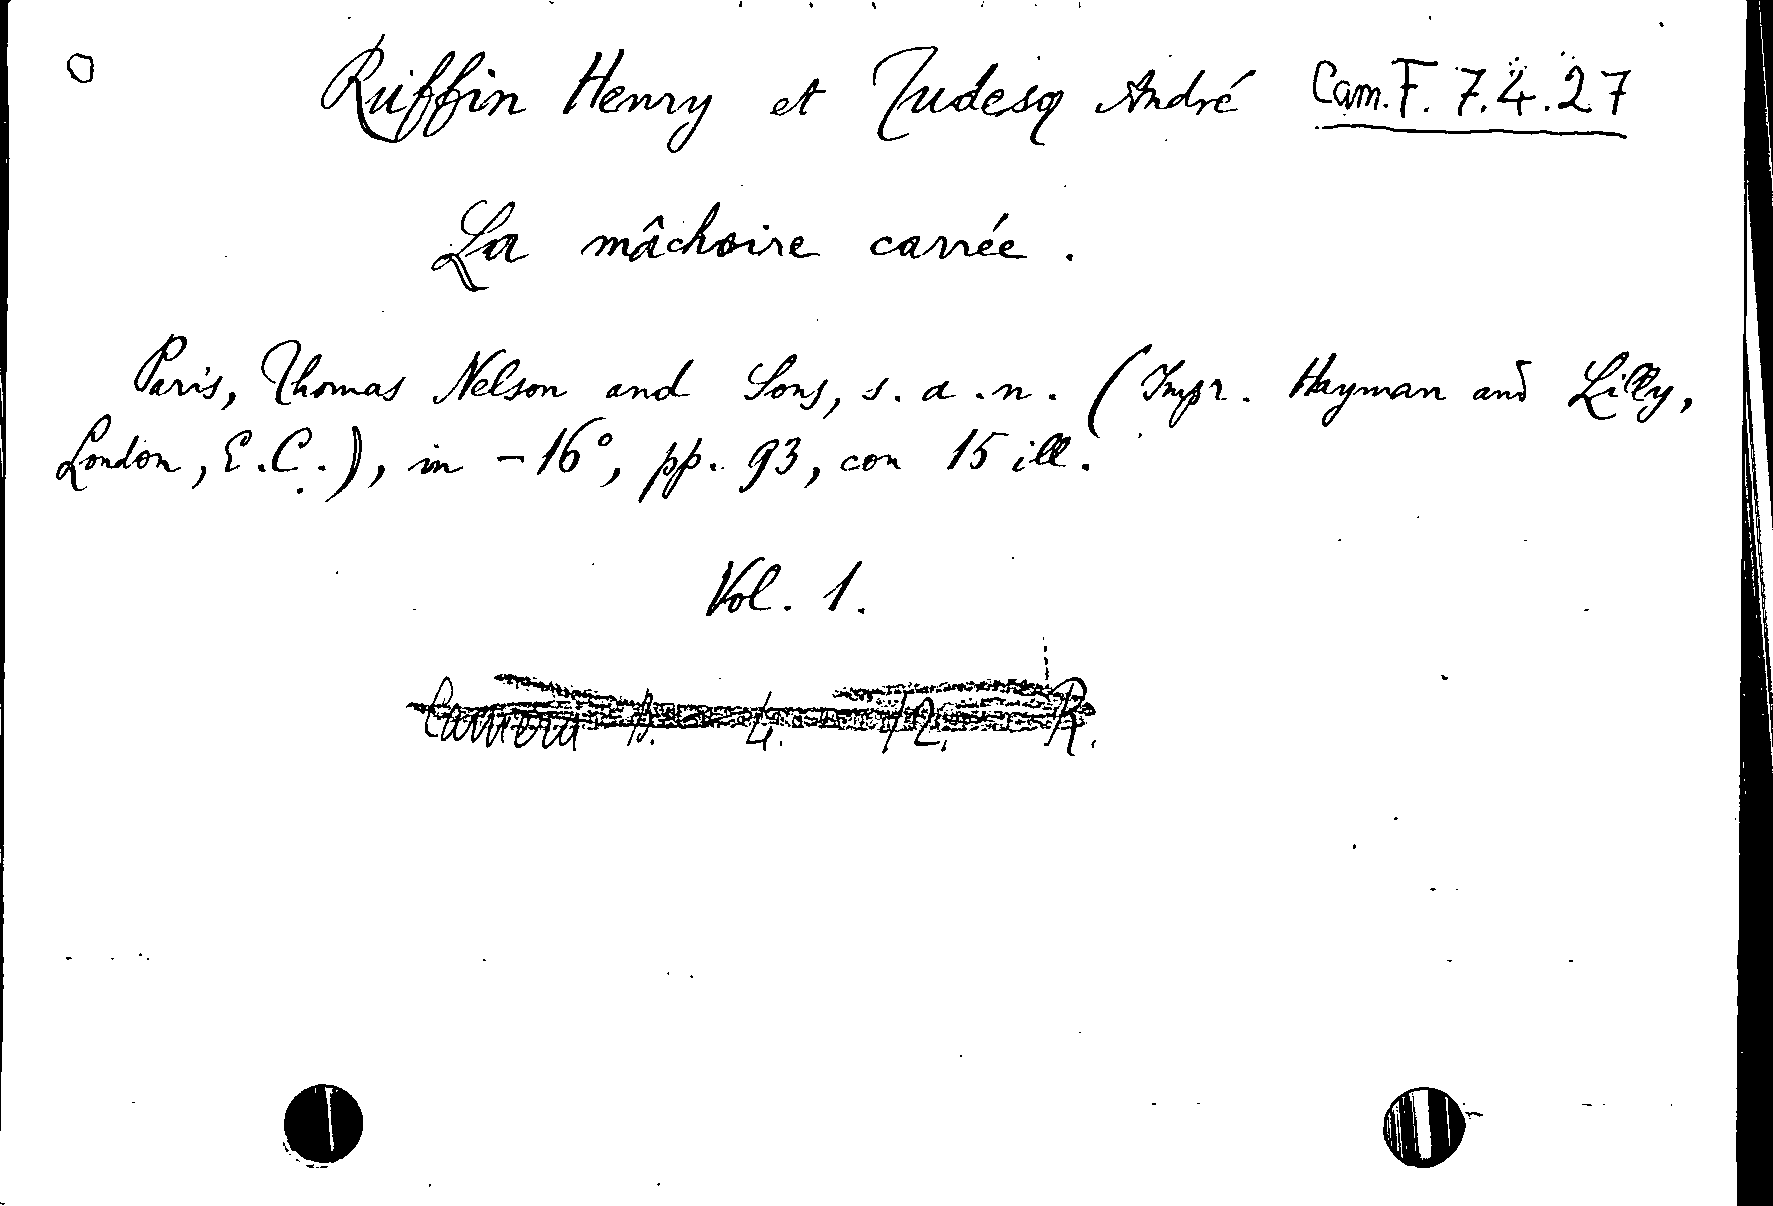 Ruffin Henry et Tudesq André Cam. F. 7.4.27
La mâchoire carrée.
Paris, Thomas Nelson and Sons, s. a. n. (Impr. Hayman and Lilly,
London, E.C.), in -16°, pp. 93, con 15 ill.
Vol. 1.
Camera 4. 12. R.